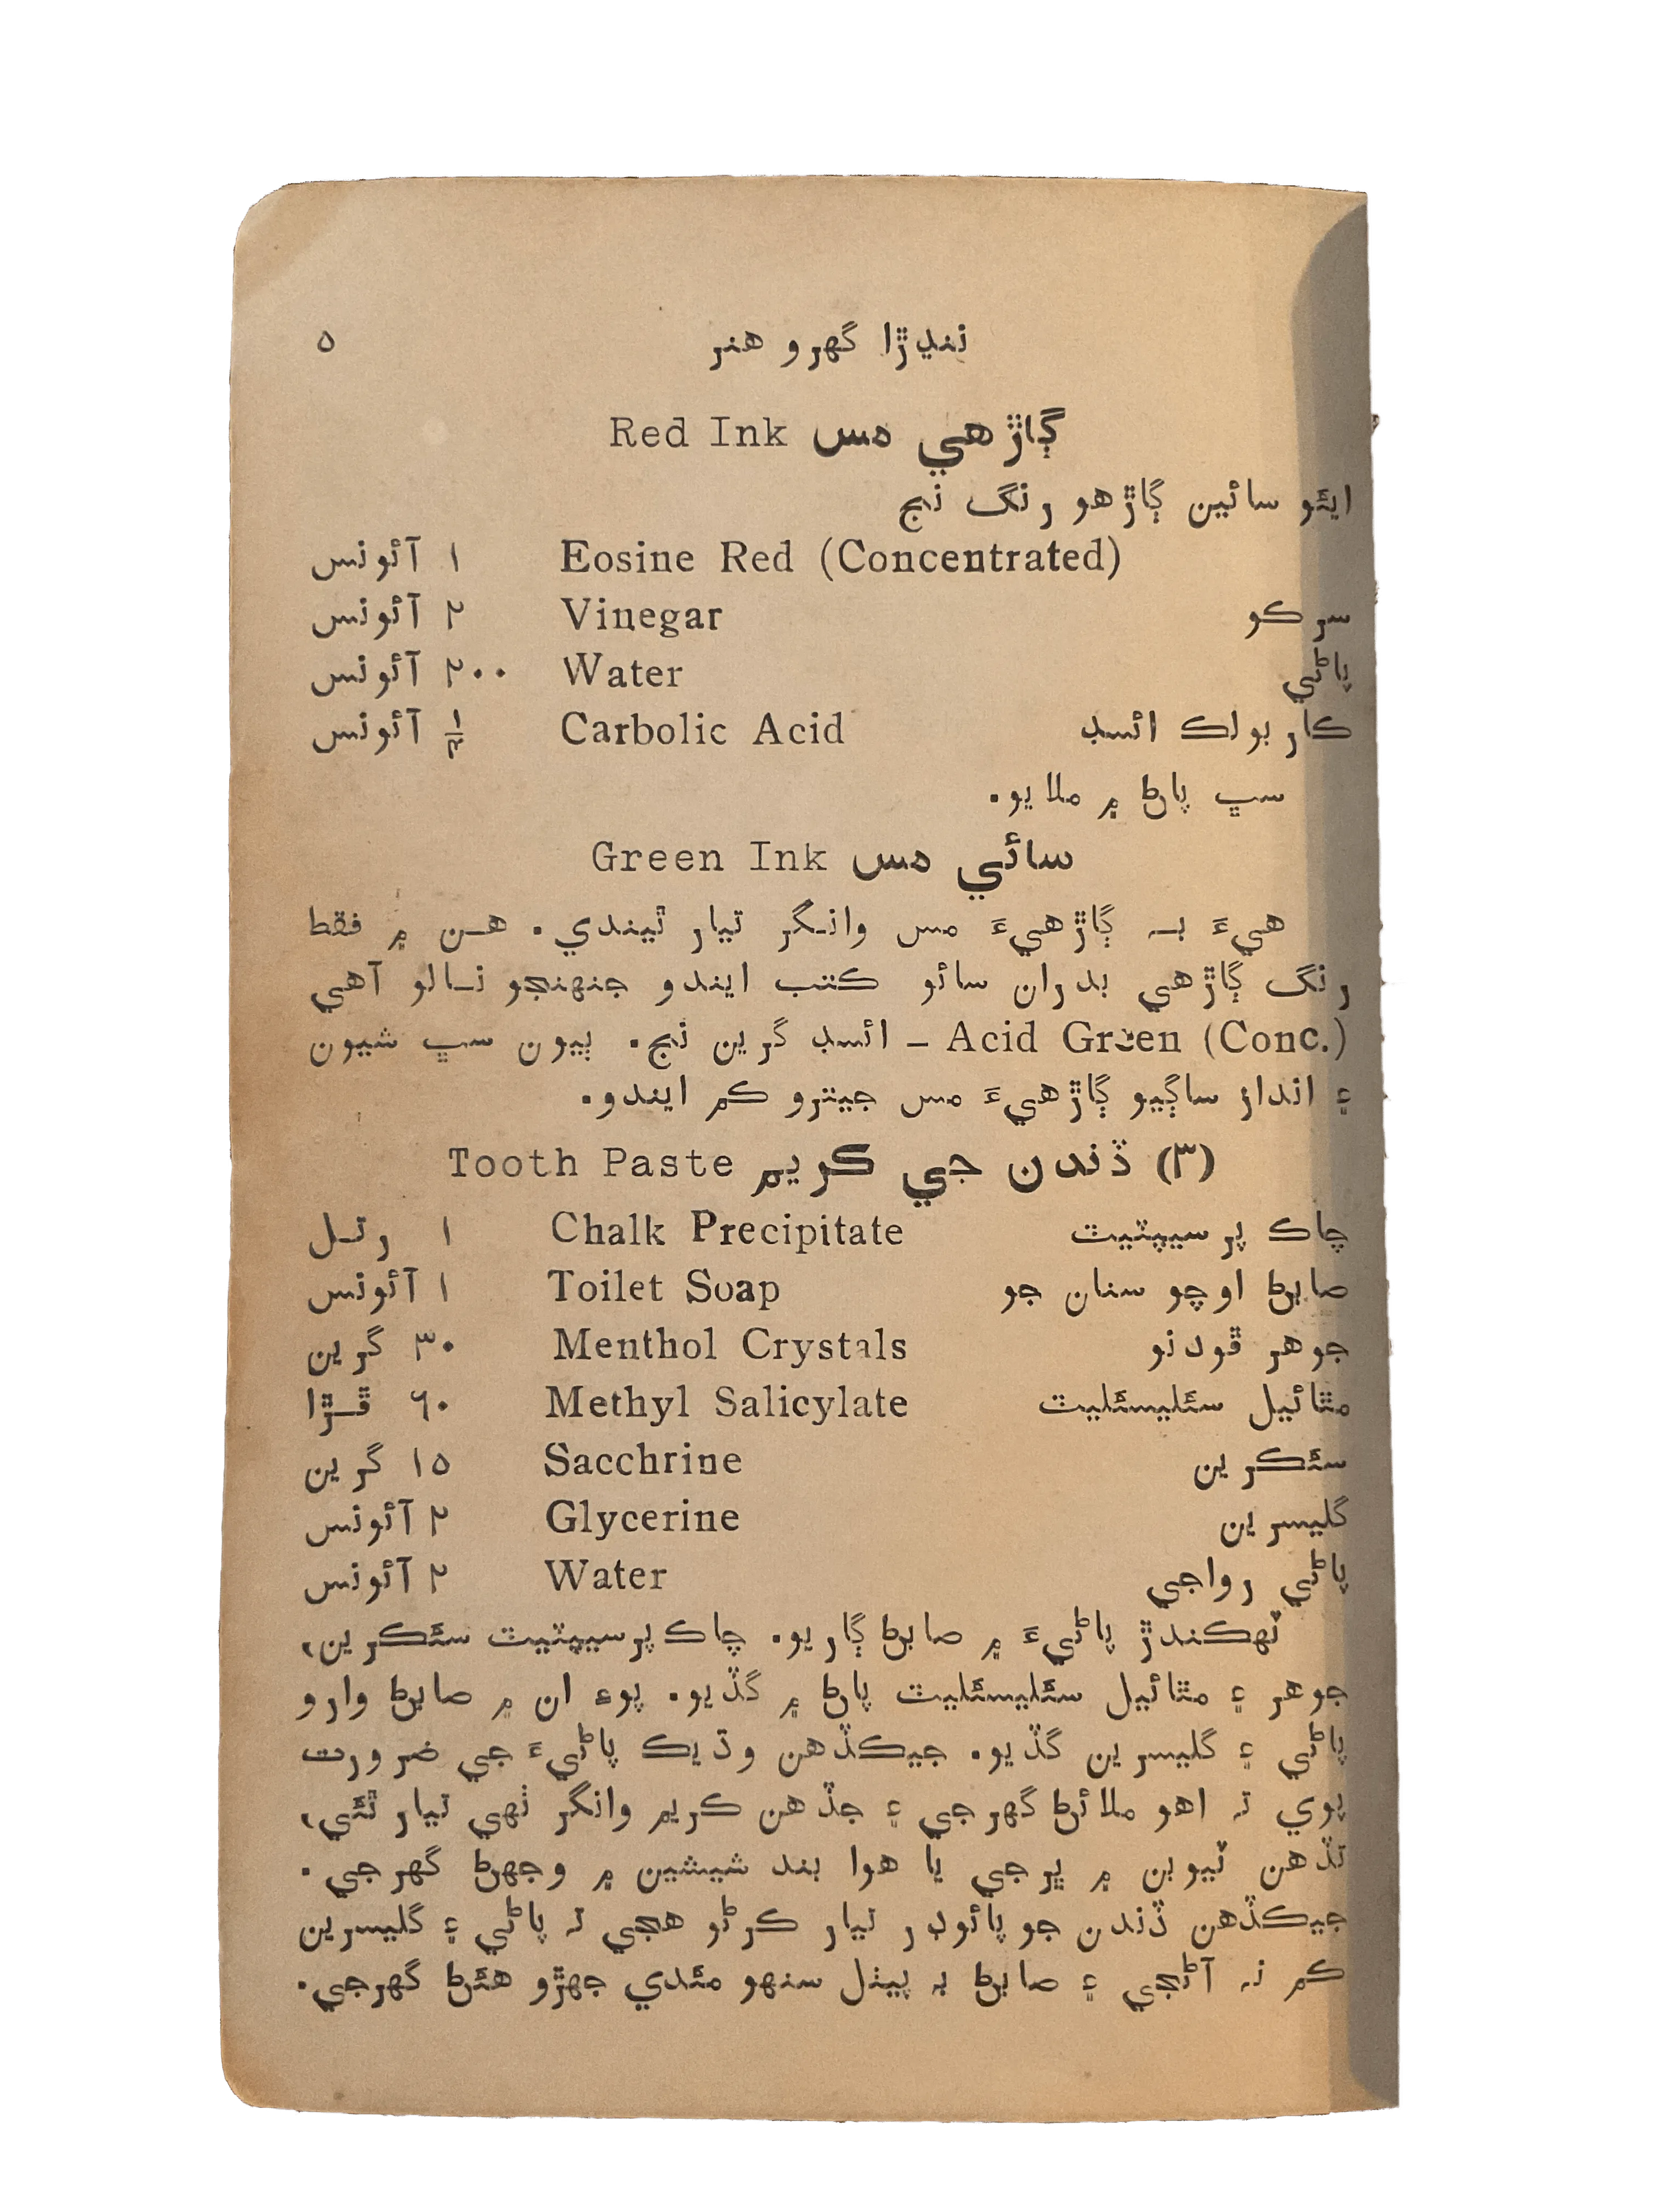 ننڍڙا گهرو هنر ٥
ڳاڙهي مس Red Ink
ايئو سائين ڳاڙهو رنگ نج
Eosine Red (Concentrated) ١ آئونس
سرڪو Vinegar ٢ آئونس
پاڻي Water ٢٠٠ آئونس
ڪاربولڪ ائسڊ Carbolic Acid آئونس
سڀ پاڻ ۾ ملايو.
سائي مس Green Ink
هيءَ بہ ڳاڙهيءَ مس وانگر تيار ٿيندي. هن ۾ فقط
رنگ ڳاڙهي بدران سائو ڪتب ايندو جنهنجو نالو آهي
Acid Green (Conc.) – ائسڊ گرين نج. ٻيون سڀ شيون
۽ انداز ساڳيو ڳاڙهيءَ مس جيترو ڪم ايندو.
(٣) ڏندن جي ڪريم Tooth Paste
چاڪ پرسيپٽيٽ Chalk Precipitate ١ رتل
صابڻ اوچو سنان جو Toilet Soap ١ آئونس
جوهر ڦودنو Menthol Crystals ٣٠ گرين
مٿائيل سئليسئليٽ Methyl Salicylate ٦٠ ڦڙا
سئڪرين Sacchrine ١٥ گرين
گليسرين Glycerine ٢ آئونس
پاڻي رواجي Water ٢ آئونس
ٽهڪندڙ پاڻيءَ ۾ صابڻ ڳاريو. چاڪ پرسيپٽيٽ سئڪرين،
جوهر ۽ مٿائيل سئليسئليٽ پاڻ ۾ گڏيو. پوءِ ان ۾ صابڻ وارو
پاڻي ۽ گليسرين گڏيو. جيڪڏهن وڌيڪ پاڻيءَ جي ضرورت
پوي تہ اهو ملائڻ گهرجي ۽ جڏهن ڪريم وانگر ٺهي تيار ٿئي،
تڏهن ٽيوبن ۾ ڀرجي يا هوا بند شيشين ۾ وجهڻ گهرجي.
جيڪڏهن ڏندن جو پائوڊر تيار ڪرڻو هجي تہ پاڻي ۽ گليسرين
ڪم نہ آڻجي ۽ صابڻ بہ پيٺل سنهو مئدي جهڙو هئڻ گهرجي.